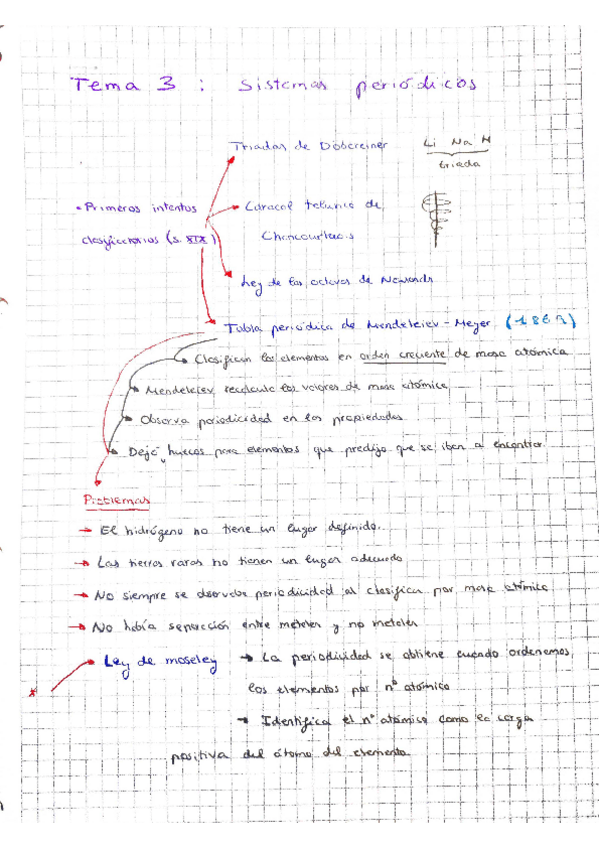 Tema 3 : Sistemas periódicos
Triadas de Döbereiner
Li Na K
triada
• Primeros intentos
clasificatorios (s. XIX)
Caracol telúrico de
Chancourtois
Ley de las octavas de Newlands
Tabla periódica de Mendeleiev - Meyer (1869)
Clasifican los elementos en orden creciente de masa atómica
Mendeleiev recalculó los valores de masa atómica
Observa periodicidad en las propiedades
Dejó huecos para elementos que predijo que se iban a encontrar
Problemas
→ El hidrógeno no tiene un lugar definido.
→ Las tierras raras no tienen un lugar adecuado
→ No siempre se observaba periodicidad al clasificar por masa atómica
→ No había separación entre metales y no metales
* Ley de moseley → La periodicidad se obtiene cuando ordenemos
los elementos por nº atómico
→ Identifica el nº atómico como la carga
positiva del átomo del elemento.